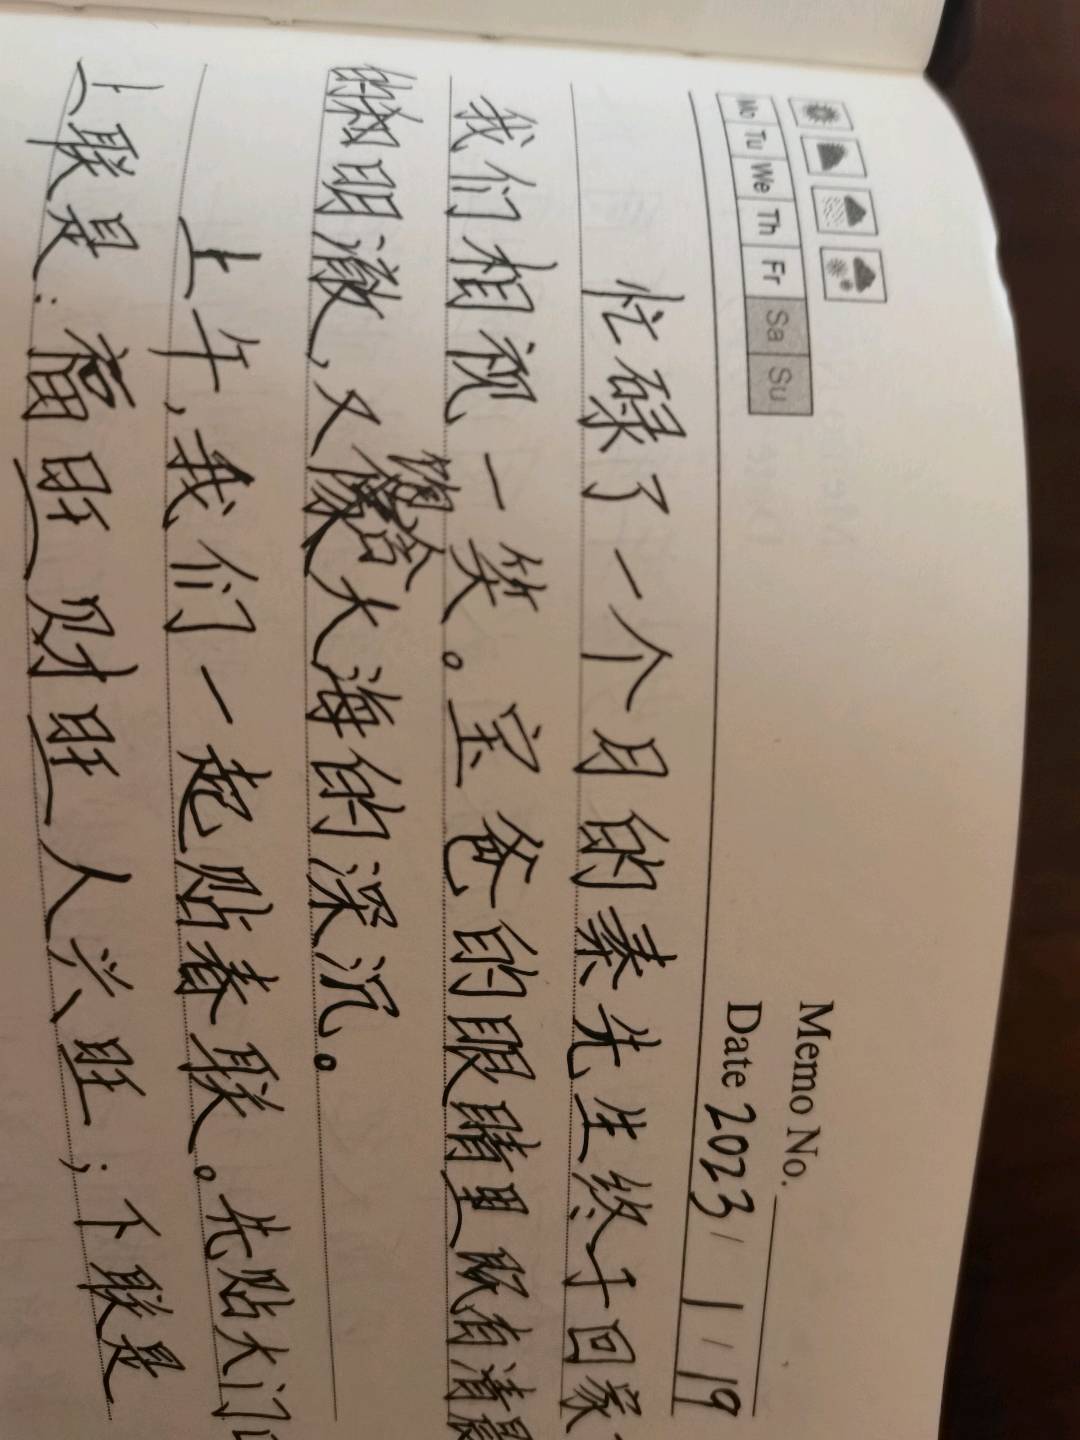 Memo No.
Mo Tu We Th Fr Sa Su
Date 2023 / 1 / 19
忙碌了一个月的秦先生终于回家
我们相视一笑。宝爸的眼睛里既有清晨
的湖明澈，又像大海的深沉。
上午，我们一起贴春联。先贴大门
上联是：福旺财旺人兴旺；下联是